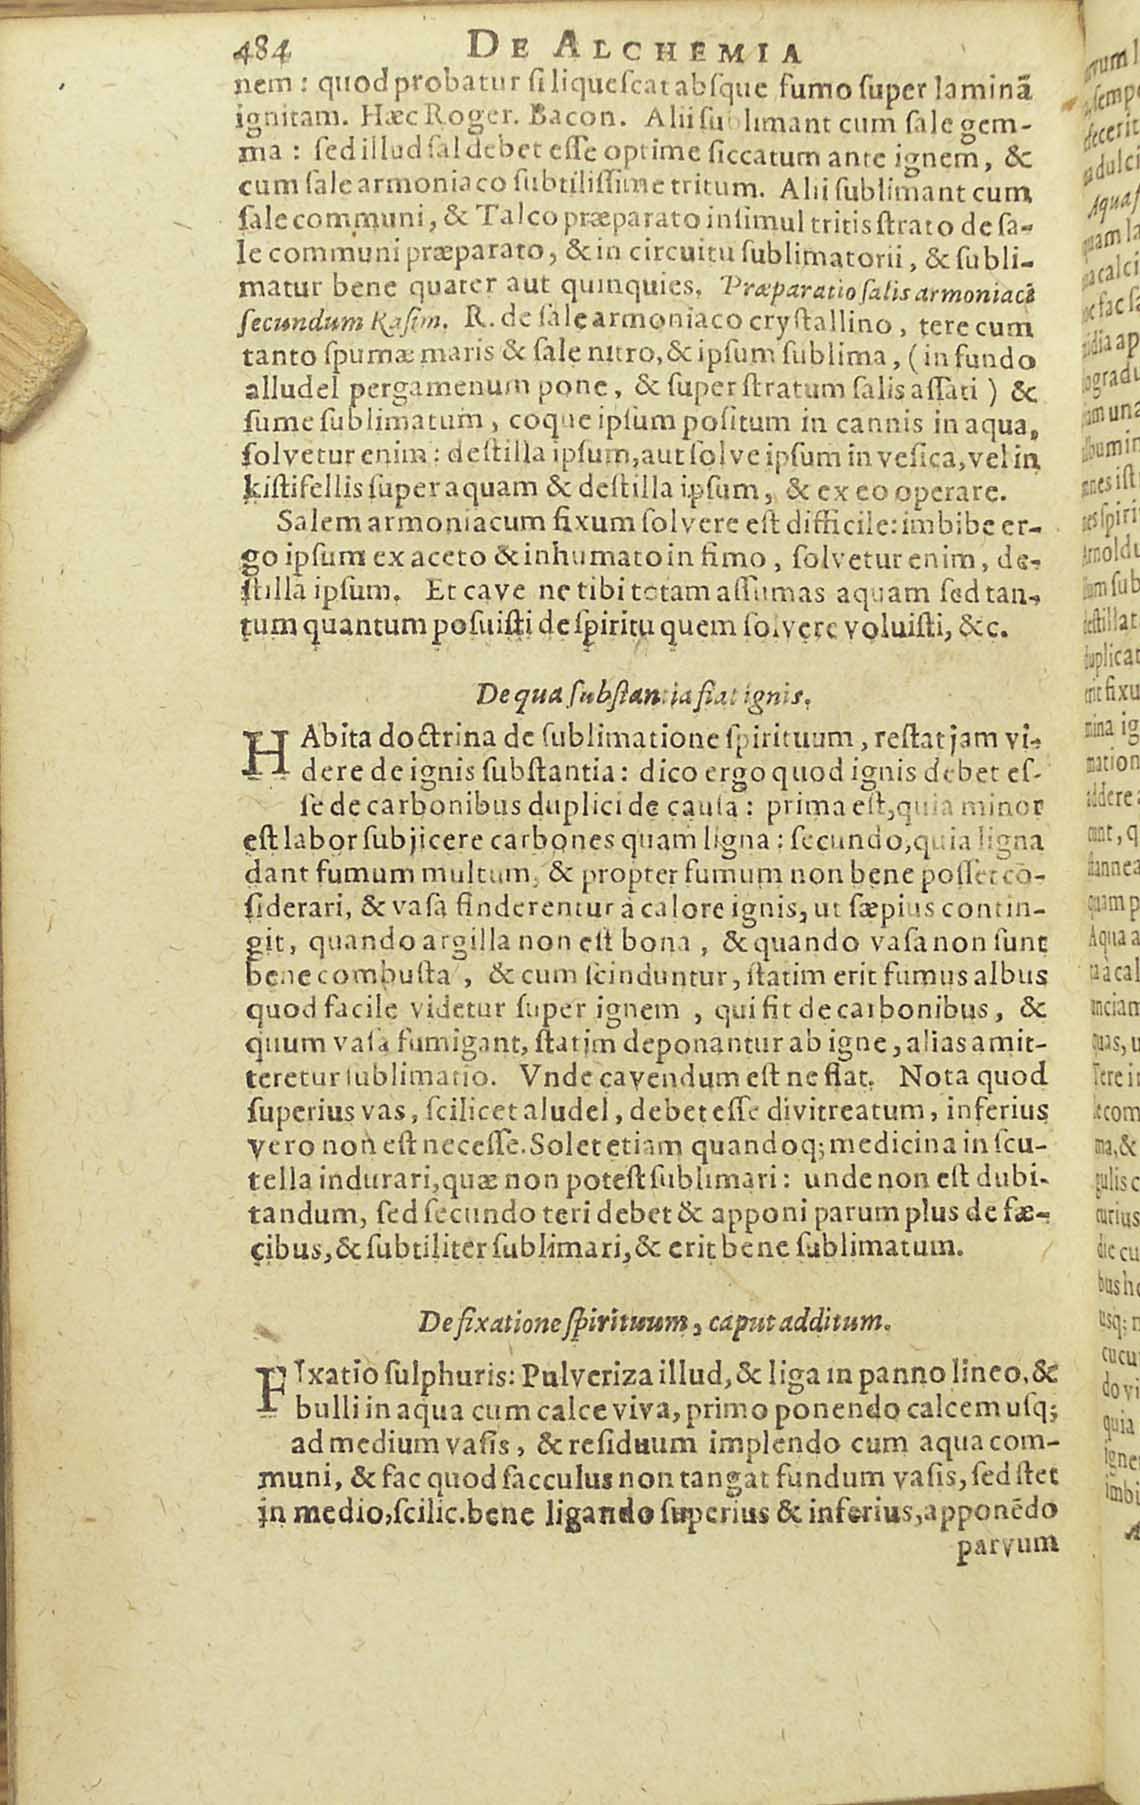 484 DE ALCHEMIA
nem: quod probatur si liquescat absque fumo super laminā
ignitam. Hæc Roger. Bacon. Alii sublimant cum sale gem-
ma: sed illud sal debet esse optime siccatum ante ignem, &
cum sale armoniaco subtilissime tritum. Alii sublimant cum
sale communi, & Talco præparato insimul tritis strato de sa-
le communi præparato, & in circuitu sublimatorii, & subli-
matur bene quater aut quinquies. Præparatio salis armoniaci
secundum Rasim. R. de sale armoniaco crystallino, tere cum
tanto spumæ maris & sale nitro, & ipsum sublima, (in fundo
alludel pergamenum pone, & super stratum salis assati) &
sume sublimatum, coque ipsum positum in cannis in aqua,
solvetur enim: destilla ipsum, aut solve ipsum in vesica, vel in
kisti fellis super aquam & destilla ipsum, & ex eo operare.
Salem armoniacum fixum solvere est difficile: imbibe er-
go ipsum ex aceto & inhumato in fimo, solvetur enim, de-
stilla ipsum. Et cave ne tibi totam assumas aquam sed tan-
tum quantum posuisti de spiritu quem solvere voluisti, &c.
De qua substantia fiat ignis.
HAbita doctrina de sublimatione spirituum, restat jam vi-
dere de ignis substantia: dico ergo quod ignis debet es-
se de carbonibus duplici de causa: prima est, quia minor
est labor subjicere carbones quam ligna: secundo, quia ligna
dant fumum multum, & propter fumum non bene posset cō-
siderari, & vasa finderentur à calore ignis, ut sæpius contin-
git, quando argilla non est bona, & quando vasa non sunt
bene combusta, & cum scinduntur, statim erit fumus albus
quod facile videtur super ignem, qui fit de carbonibus, &
quum vasa fumigant, statim deponantur ab igne, alias amit-
teretur sublimatio. Vnde cavendum est ne fiat. Nota quod
superius vas, scilicet aludel, debet esse divitreatum, inferius
vero non est necesse. Solet etiam quandoq; medicina in scu-
tella indurari, quæ non potest sublimari: unde non est dubi-
tandum, sed secundo teri debet & apponi parum plus de fæ-
cibus, & subtiliter sublimari, & erit bene sublimatum.
De fixatione spirituum, caput additum.
FIxatio sulphuris: Pulveriza illud, & liga in panno lineo, &
bulli in aqua cum calce viva, primo ponendo calcem usq;
ad medium vasis, & residuum implendo cum aqua com-
muni, & fac quod sacculus non tangat fundum vasis, sed stet
in medio, scilic. bene ligando superius & inferius, apponēdo
parvum